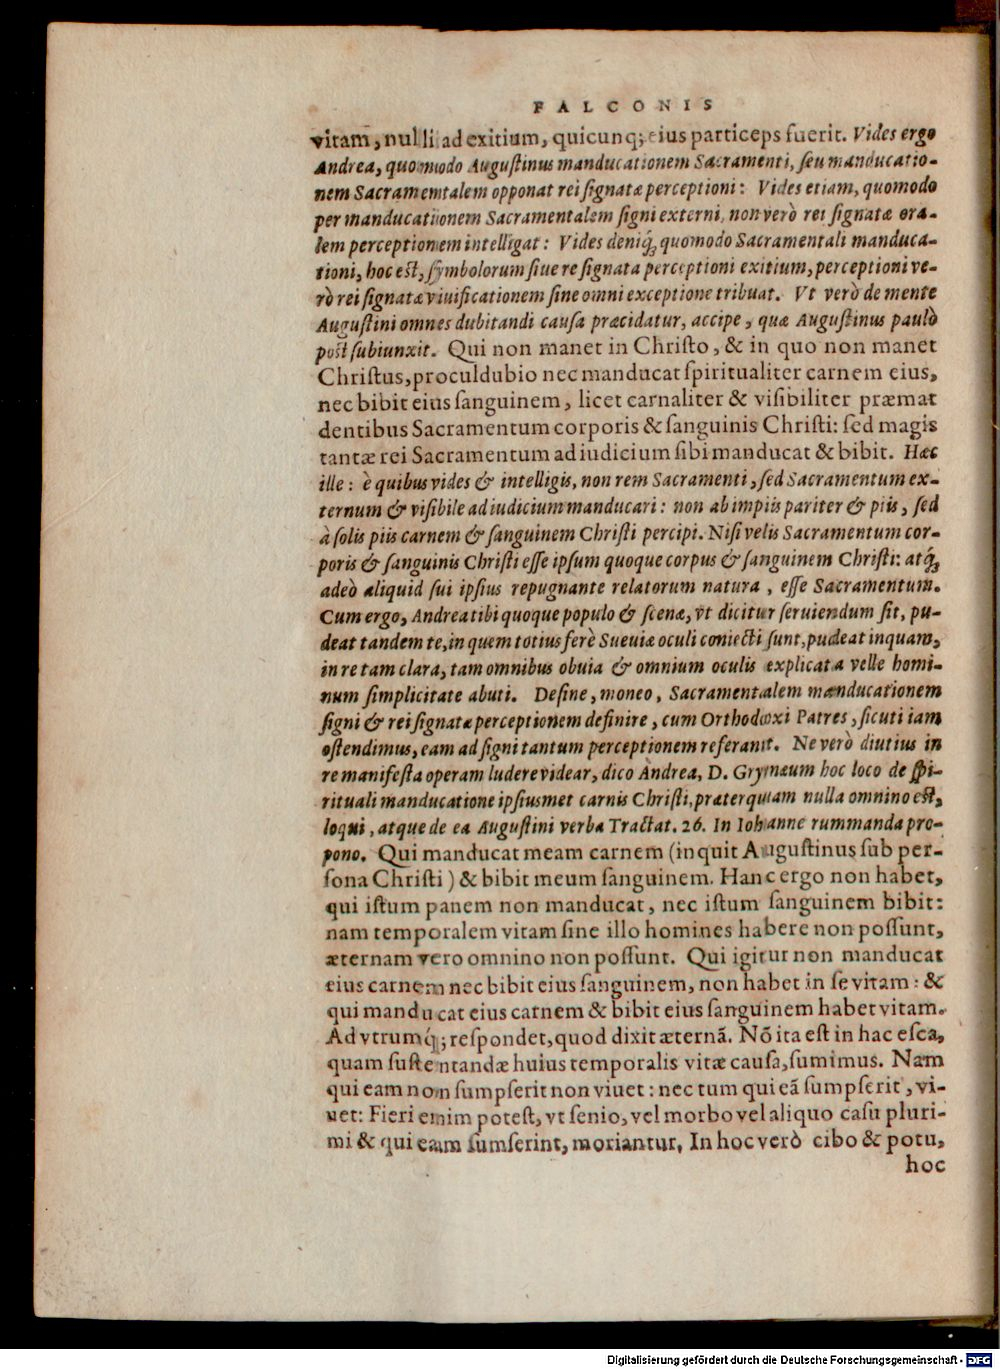 FALCONIS
vitam, nulli ad exitium, quicunq; eius particeps fuerit. Vides ergo
Andrea, quomodo Auguſtinus manducationem Sacramenti, ſeu manducatio-
nem Sacramemtalem opponat rei ſignatæ perceptioni: Vides etiam, quomodo
per manducationem Sacramentalem ſigni externi, non verò rei ſignatæ ora-
lem perceptionem intelligat: Vides deniq́;, quomodo Sacramentali manduca-
tioni, hoc eſt, ſymbolorum ſiue re ſignata perceptioni exitium, perceptioni ve-
rò rei ſignatæ viuificationem ſine omni exceptione tribuat. Vt verò de mente
Auguſtini omnes dubitandi cauſa præcidatur, accipe, quæ Auguſtinus paulò
poſt ſubiunxit. Qui non manet in Chriſto, & in quo non manet
Chriſtus, proculdubio nec manducat ſpiritualiter carnem eius,
nec bibit eius ſanguinem, licet carnaliter & viſibiliter præmat
dentibus Sacramentum corporis & ſanguinis Chriſti: ſed magis
tantæ rei Sacramentum ad iudicium ſibi manducat & bibit. Hæc
ille: è quibus vides & intelligis, non rem Sacramenti, ſed Sacramentum ex-
ternum & viſibile ad iudicium manducari: non ab impiis pariter & piis, ſed
à ſolis piis carnem & ſanguinem Chriſti percipi. Niſi velis Sacramentum cor-
poris & ſanguinis Chriſti eſſe ipſum quoque corpus & ſanguinem Chriſti: atq́;
adeò aliquid ſui ipſius repugnante relatorum natura, eſſe Sacramentum.
Cum ergo, Andrea tibi quoque populo & ſcenæ, vt dicitur ſeruiendum ſit, pu-
deat tandem te, in quem totius ferè Sueuiæ oculi coniecti ſunt, pudeat inquam,
in re tam clara, tam omnibus obuia & omnium oculis explicata velle homi-
num ſimplicitate abuti. Deſine, moneo, Sacramentalem manducationem
ſigni & rei ſignatæ perceptionem definire, cum Orthodoxi Patres, ſicuti iam
oſtendimus, eam ad ſigni tantum perceptionem referant. Ne verò diutius in
re manifeſta operam ludere videar, dico Andrea, D. Grynæum hoc loco de ſpi-
rituali manducatione ipſiusmet carnis Chriſti, præterquam nulla omnino eſt,
loqui, atque de ea Auguſtini verba Tractat. 26. In Iohanne rummanda pro-
pono. Qui manducat meam carnem (inquit Auguſtinus ſub per-
ſona Chriſti) & bibit meum ſanguinem. Hanc ergo non habet,
qui iſtum panem non manducat, nec iſtum ſanguinem bibit:
nam temporalem vitam ſine illo homines habere non poſſunt,
æternam vero omnino non poſſunt. Qui igitur non manducat
eius carnem nec bibit eius ſanguinem, non habet in ſe vitam: &
qui manducat eius carnem & bibit eius ſanguinem habet vitam.
Ad vtrumq́; reſpondet, quod dixit æternã. Nõ ita eſt in hac eſca,
quam ſuſtentandæ huius temporalis vitæ cauſa, ſumimus. Nam
qui eam non ſumpſerit non viuet: nec tum qui eã ſumpſerit, vi-
uet: Fieri enim poteſt, vt ſenio, vel morbo vel aliquo caſu pluri-
mi & qui eam ſumſerint, moriantur. In hoc verò cibo & potu,
hoc
Digitalisierung gefördert durch die Deutsche Forschungsgemeinschaft - DFG